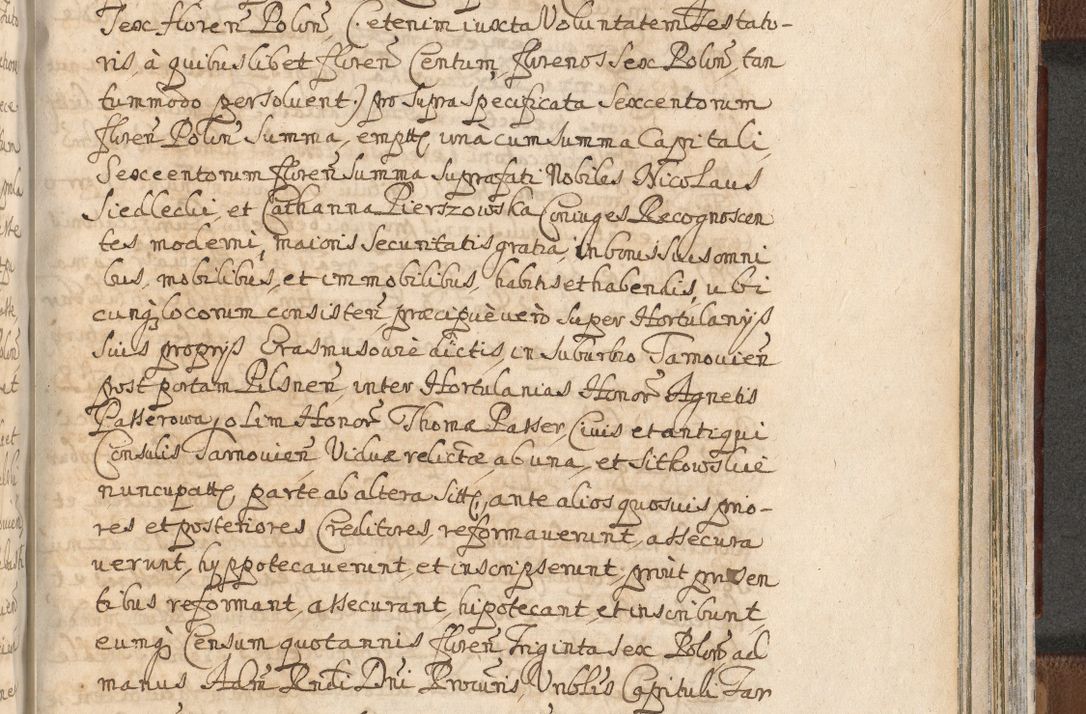 Sex floren̄ Polon̄, (: etenim iuxta Voluntatem Testato-
ris, à quibuslibet floren̄ Centum, florenos Sex Polon̄, tan
tummodo persoluent:) pro supra specificata Sexcentorum
floren̄ Polon̄ Summa, emptt, unà cum summa Capitali,
Sexcentorum floren̄ summa suprafati Nobiles Nicolaus
Siedlecki, et Catharina Pierszowska Coniuges Recognoscen
tes moderni, maioris securitatis gratia, in bonis suis omni
bus, mobilibus, et immobilibus, habitis et habendis, ubi
cunq locorum consisten̄, præcipuè verò super Hortulanijs
suis proprijs Erasmusowie dictis, in suburbio Tarnouien̄
post portam Pilsnen̄, inter Hortulanias Honor Agnetis
Passerowa, olim Honor Thomæ Passer, Ciuis et antiqui
Consulis Tarnouien̄ Viduæ relictæ ab una, et Sitkowskie
nuncupatt, parte ab altera sitt, ante alios quosuis prio-
res et posteriores Creditores, reformauerunt, assecura
uerunt, hyppotecauerunt, et inscripserunt, prout præsen
tibus reformant, assecurant, hipotecant, et inscribunt,
eumq Censum quotannis floren̄ Triginta sex Polon̄ ad
manus Adm̄ Rndi Dni Procuris, Vnblis Capituli Tar